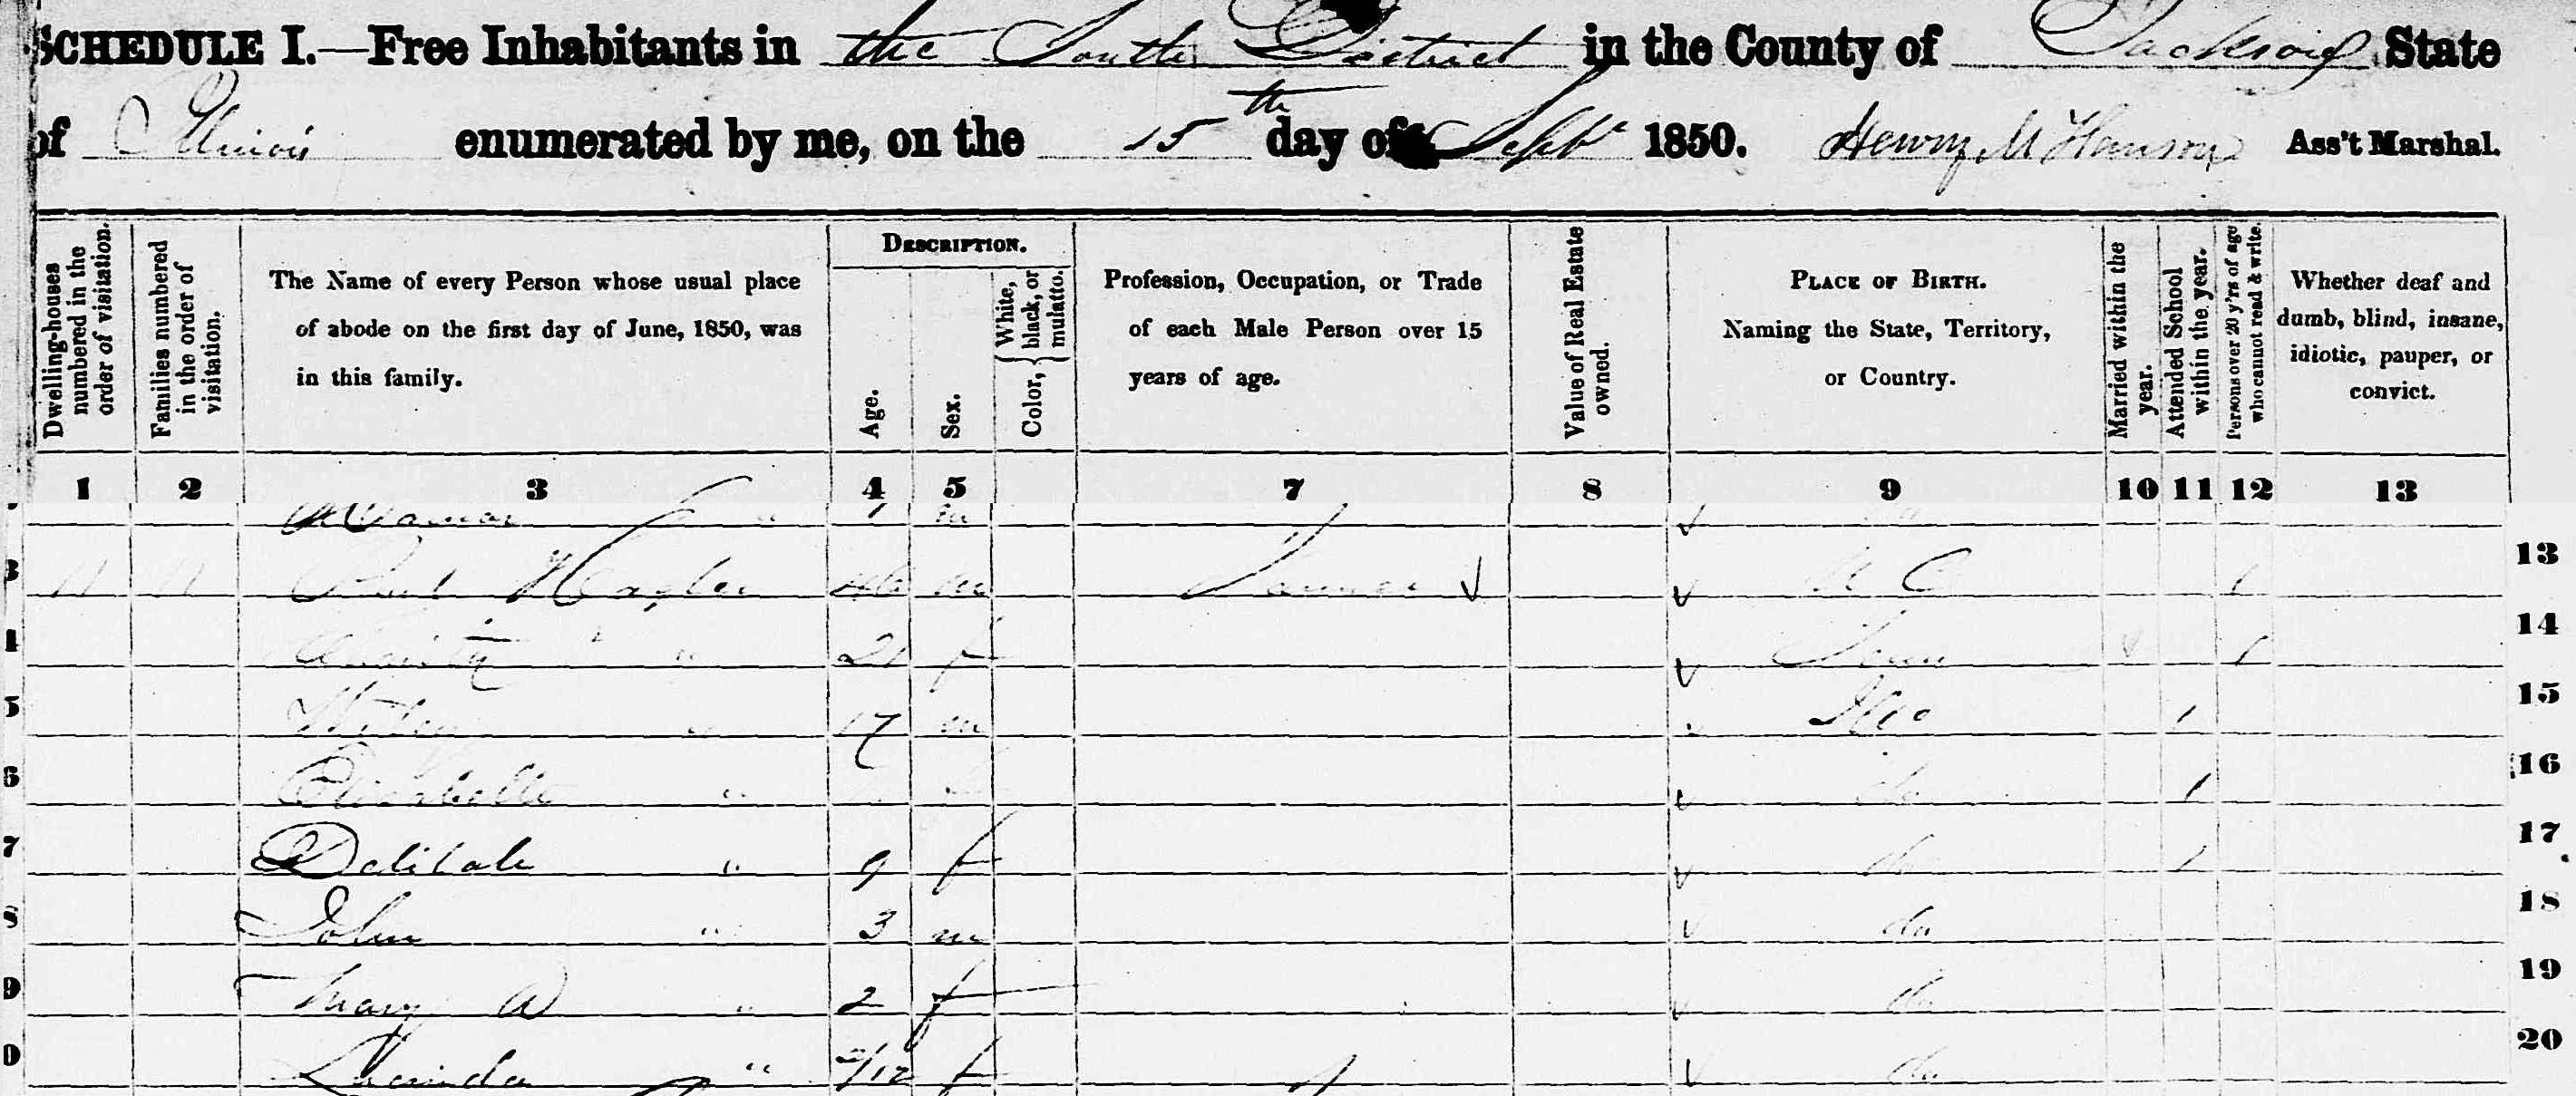 SCHEDULE I.—Free Inhabitants in the South District in the County of Jackson State
of Illinois enumerated by me, on the 15th day of Sept 1850. Henry M Hanson Ass't Marshal.
Dwelling-houses numbered in the order of visitation.
Families numbered in the order of visitation.
The Name of every Person whose usual place of abode on the first day of June, 1850, was in this family.
DESCRIPTION.
Age.
Sex.
Color, { White, black, or mulatto.
Profession, Occupation, or Trade of each Male Person over 15 years of age.
Value of Real Estate owned.
PLACE OF BIRTH.
Naming the State, Territory, or Country.
Married within the year.
Attended School within the year.
Persons over 20 y'rs of age who cannot read & write.
Whether deaf and dumb, blind, insane, idiotic, pauper, or convict.
1 2 3 4 5 7 8 9 10 11 12 13
" m
3 11 11 Paul Hagler 46 m Farmer N C 1 13
4 " 21 f Tenn 1 14
5 " 17 m Illo 1 15
6 Elizabeth " do 1 16
7 Delilah " 9 f do 1 17
8 John " 3 m do 18
9 Mary A " 2 f do 19
0 Lucinda " 2/12 f do 20